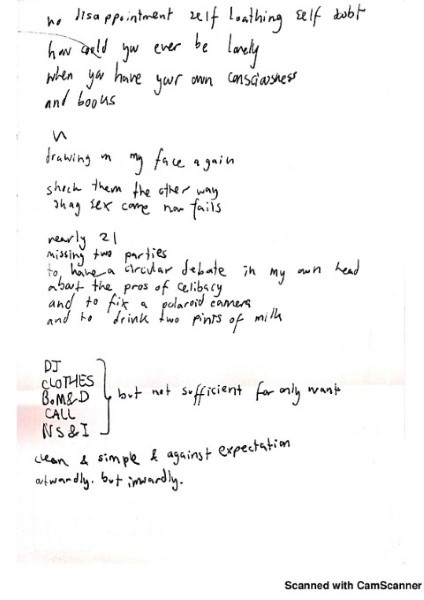 no disappointment self loathing self doubt
how could you ever be lonely
when you have your own consciousness
and books
drawing on my face again
shock them the other way
shag sex come now fails
nearly 21
missing two parties
to have a circular debate in my own head
about the pros of celibacy
and to fix a polaroid camera
and to drink two pints of milk
DJ
CLOTHES
BOM&D
CALL
NS&I
but not sufficient for only wants
clean & simple & against expectation
outwardly. but inwardly.
Scanned with CamScanner